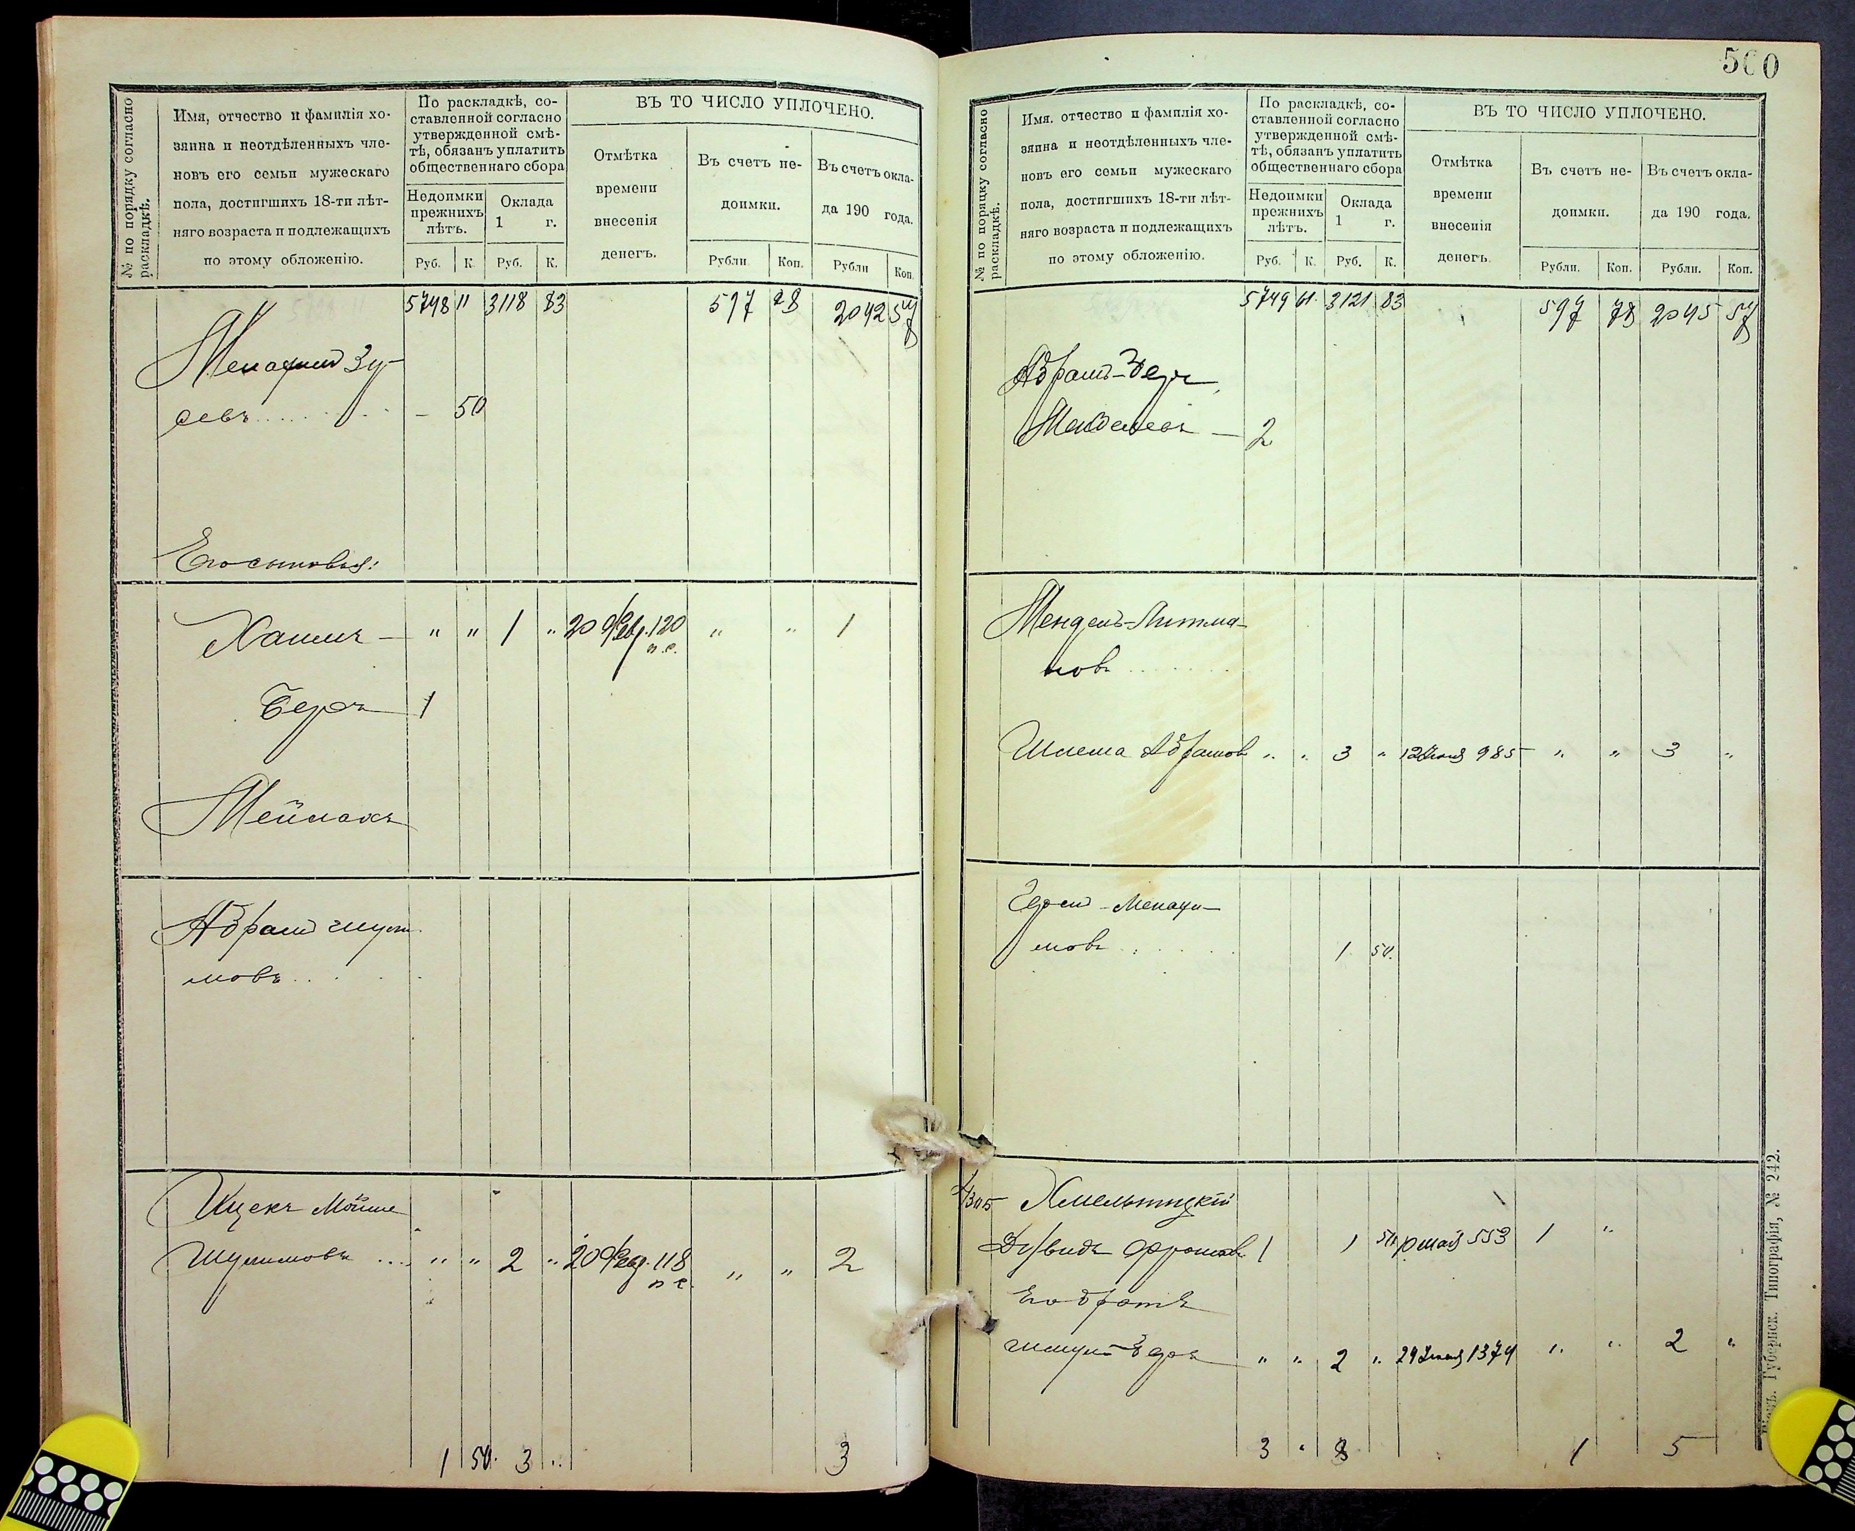 560
№ по порядку согласно раскладкѣ.
Имя, отчество и фамилія хо-
зяина и неотдѣленныхъ чле-
новъ его семьи мужескаго
пола, достигшихъ 18-ти лѣт-
няго возраста и подлежащихъ
по этому обложенію.
По раскладкѣ, со-
ставленной согласно
утвержденной смѣ-
тѣ, обязанъ уплатить
общественнаго сбора
Недоимки
прежнихъ
лѣтъ.
Оклада
1 г.
Руб. К. Руб. К.
ВЪ ТО ЧИСЛО УПЛОЧЕНО.
Отмѣтка
времени
внесенія
денегъ.
Въ счетъ не-
доимки.
Въ счетъ окла-
да 190 года.
Рубли. Коп. Рубли Коп.
5748 11 3118 83 597 28 2042 57
Менахимъ Зу-
севъ - 50
Его сыновья:
Хаимъ — " " 1 " 20 Февр. 120 " " 1
п.с.
Беръ 1
Меймохъ
Абрамъ Шули-
мовъ
Ицекъ Мойше
Шулимовъ " " 2 " 20 Февр. 118 " " 2
п с.
1 50. 3 " 3
№ по порядку согласно раскладкѣ.
Имя, отчество и фамилія хо-
зяина и неотдѣленныхъ чле-
новъ его семьи мужескаго
пола, достигшихъ 18-ти лѣт-
няго возраста и подлежащихъ
по этому обложенію.
По раскладкѣ, со-
ставленной согласно
утвержденной смѣ-
тѣ, обязанъ уплатить
общественнаго сбора
Недоимки
прежнихъ
лѣтъ.
Оклада
1 г.
Руб. К. Руб. К.
ВЪ ТО ЧИСЛО УПЛОЧЕНО.
Отмѣтка
времени
внесенія
денегъ
Въ счетъ не-
доимки.
Въ счетъ окла-
да 190 года.
Рубли. Коп. Рубли. Коп.
5749 61 3121 83 597 78 2045 57
Абрамъ-Беръ
— 2
Мендель-Литма-
новъ
Шлема Абрамов " " 3 " 12 Іюня 985 " " 3 "
Герш-Менахи-
мовъ 1 50.
Хмельницкій
Дувидъ 1 1 50 мая 553 1 "
Его братъ
" " 2 " 1374 " " 2 "
3 " 8 1 5
Губернск. Типографія, № 242.